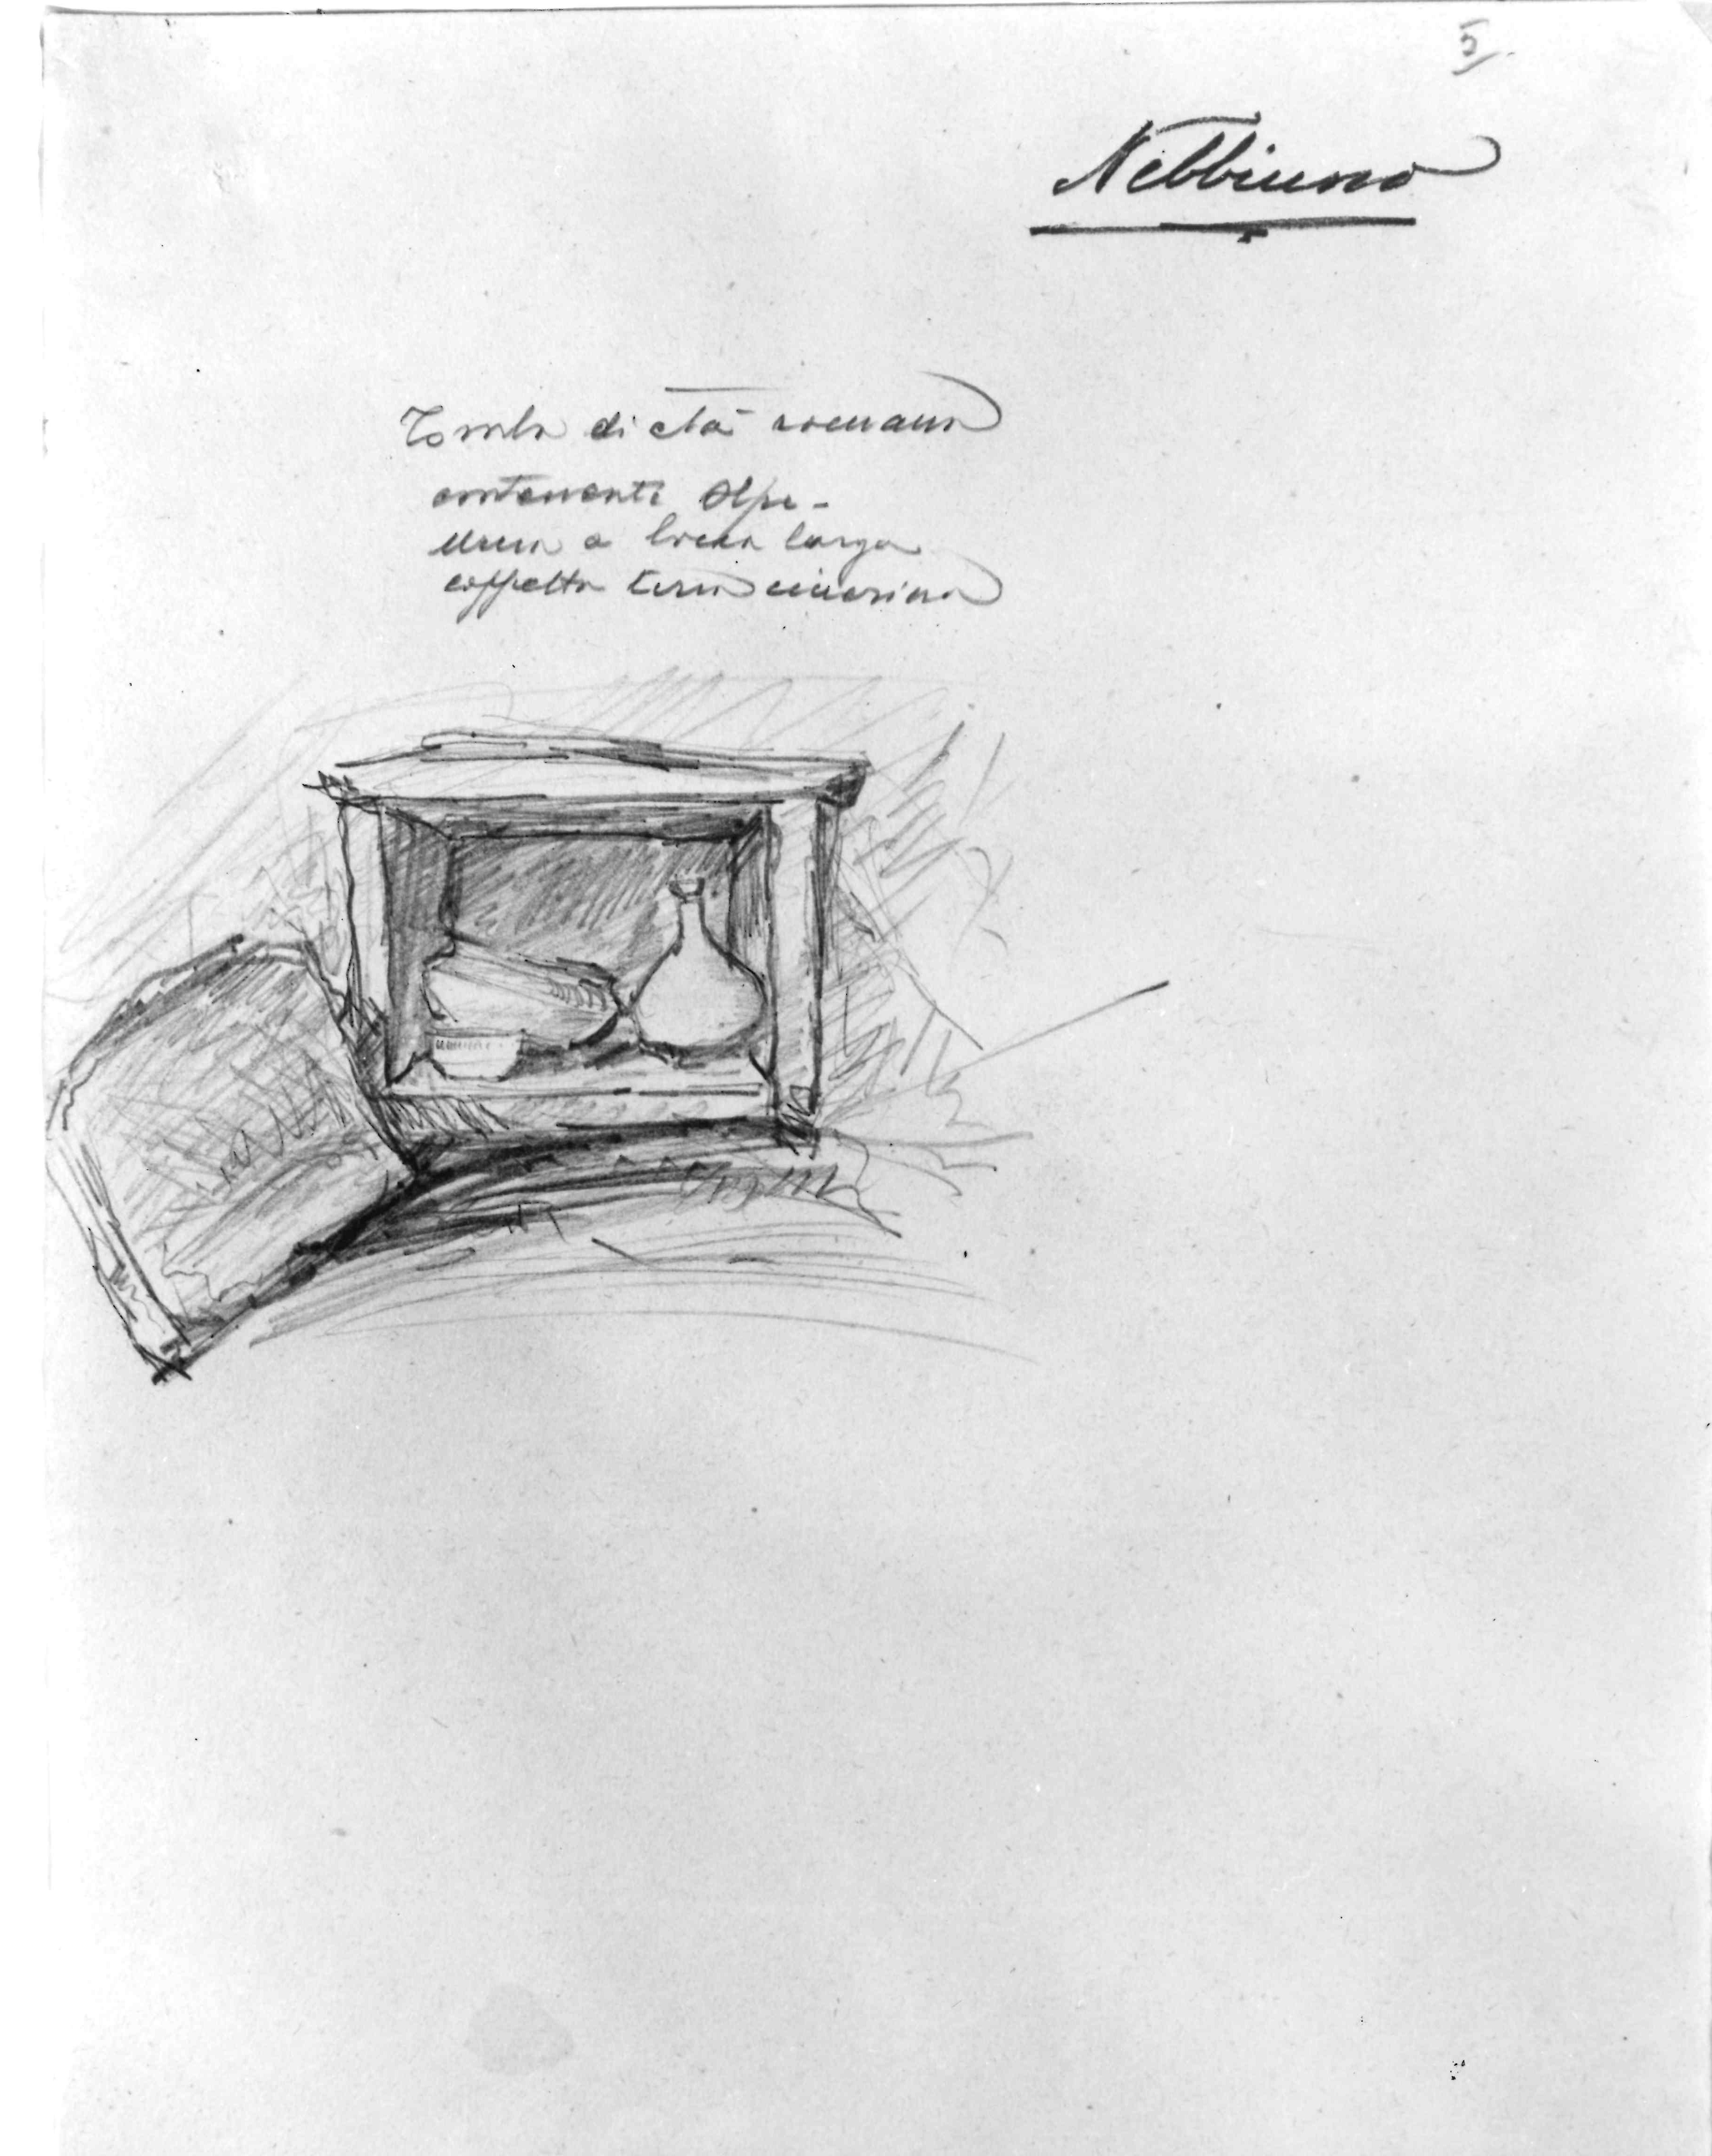 5
Nebbiuno
Tomba di età romana
contenenti Olpe -
Urna a bocca larga
coppetta terra cinerina